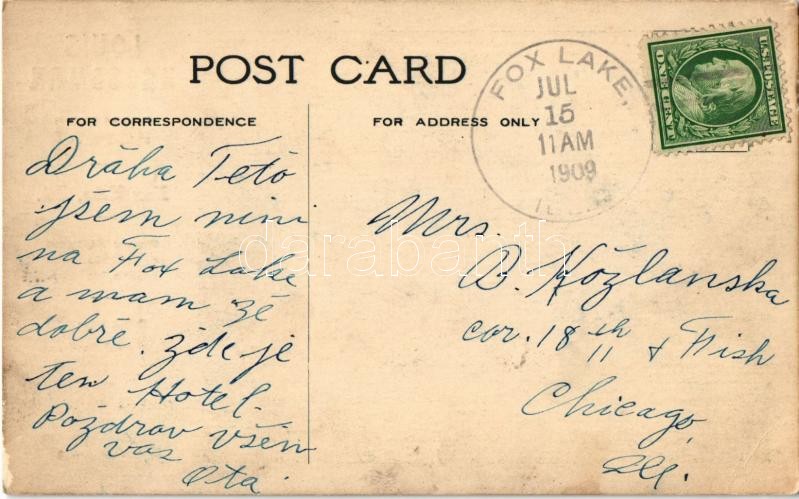 POST CARD
FOX LAKE,
JUL
15
11 AM
1909
ILL
U.S. POSTAGE
ONE CENT
FOR CORRESPONDENCE
FOR ADDRESS ONLY
Dráha Teto
jsem nini
na Fox Lake
a mam zě
dobrě. Zde je
ten Hotel.
Pozdrav všěm
vas
Ota.
Mrs.
B. Kožlanska
cor. 18th & Fish
Chicago,
Ill.
darabanth